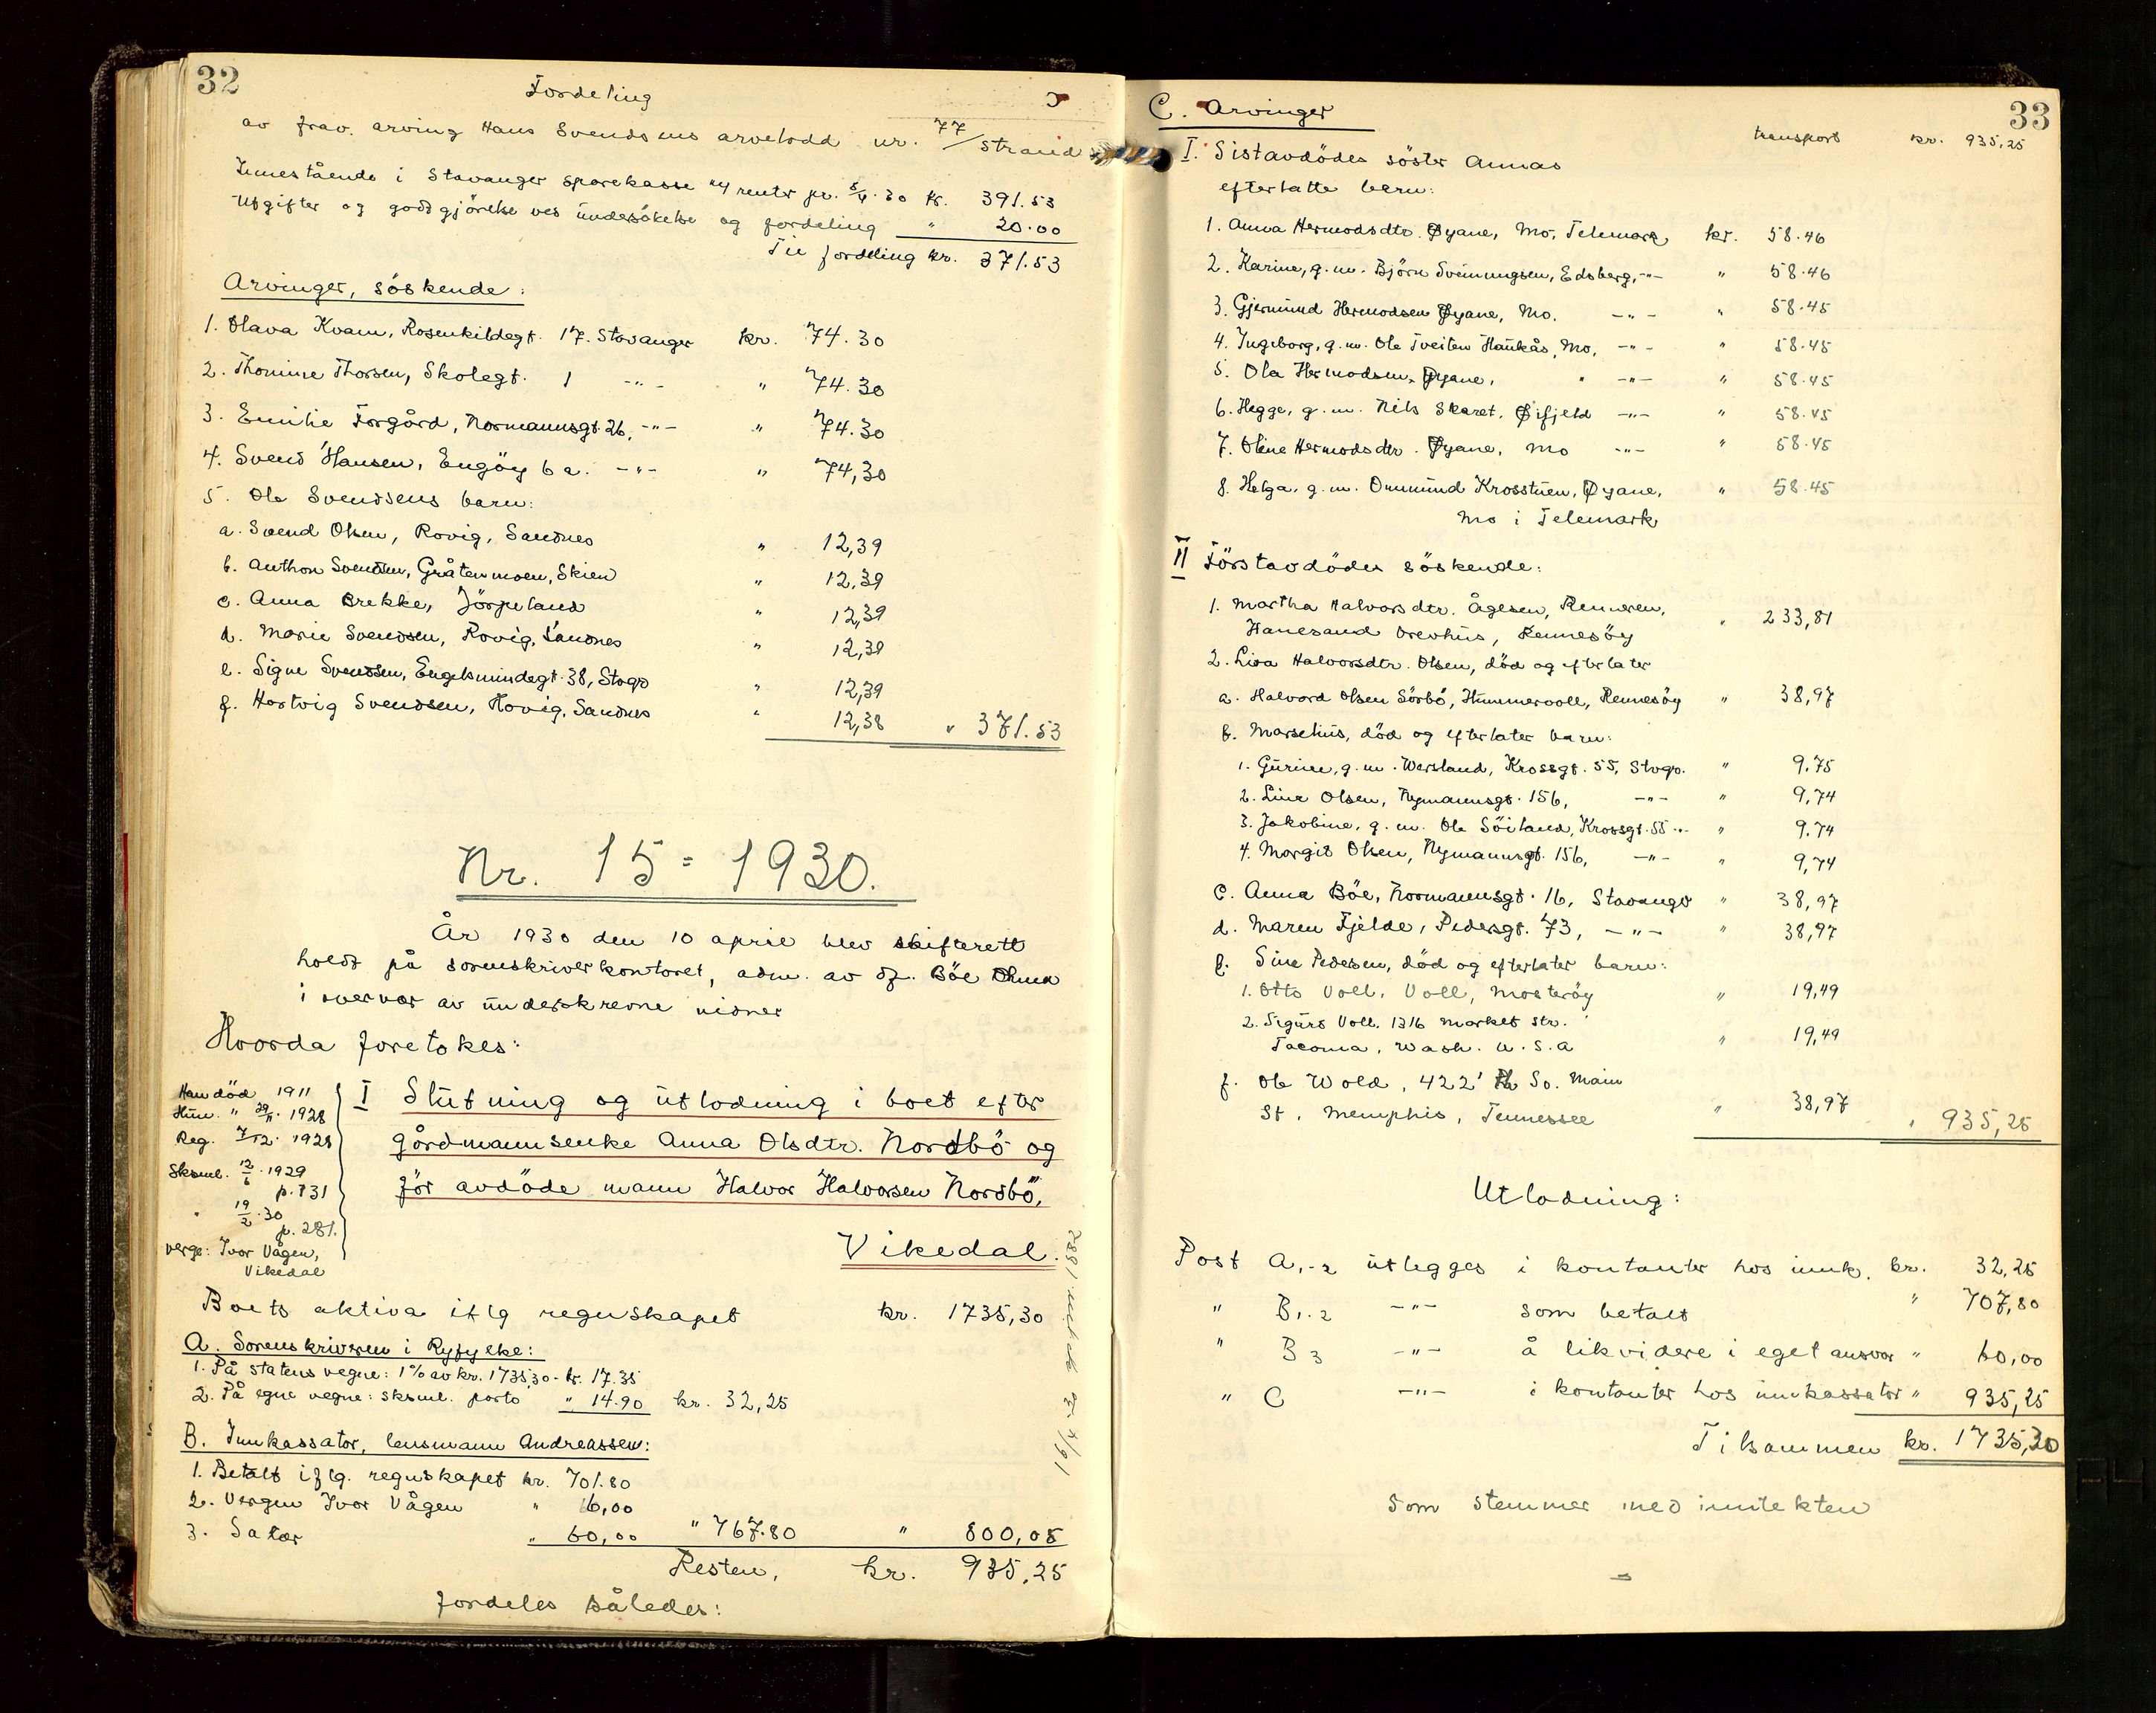 32
Fordeling
av frav. arving Hans Svendsens arvelodd nr. 77/Strand
Innestående i Stavanger Sparekasse m/ renter pr. 5/4.30 kr. 391.53
Utgifter og godtgjörelse ved undersökelse og fordeling " 20.00
Til fordeling kr. 371.53
Arvinger, söskende:
1. Olava Kvam, Rosenkildegt. 17. Stavanger kr. 74.30
2. Thomine Thorsen, Skolegt. 1 -"- " 74.30
3. Emilie Torgård, Normannsgt. 26, -"- " 74.30
4. Svend Hansen, Engöy 6 a. -"- " 74,30
5. Ole Svendsens barn:
a. Svend Olsen, Rovig, Sandnes " 12,39
b. Anthon Svendsen, Gråtenmoen, Skien " 12,39
c. Anna Brekke, Jörpeland " 12,39
d. Marie Svendsen, Rovig, Sandnes " 12,39
e. Signe Svendsen, Engelsmindegt. 38, Stvgr " 12,39
f. Hartvig Svendsen, Rovig, Sandnes " 12,38 " 371.53
Nr. 15 = 1930.
År 1930 den 10 april blev skifterett
holdt på sorenskriverkontoret, adm. av df. Böe
i overvær av underskrevne vidner
Hvorda foretokes:
Han död 1911
Hun " 29/11. 1928
Reg. 7/12. 1928
Sksml. 12/6. 1929
p. 131
" 19/2.30
p. 281.
verge: Ivar Vågen,
Vikedal
I Slutning og utlodning i boet efter
gårdmannsenke Anna Olsdtr. Nordbö og
för avdöde mann Halvor Halvorsen Nordbö,
Vikedal.
Boets aktiva iflg regnskapet kr. 1735,30
A. Sorenskriveren i Ryfylke:
1. På statens vegne: 1% av kr. 1735,30 - kr. 17.35
2. På egne vegne: sksml. porto " 14.90 kr. 32,25
B. Innkassator, lensmann Andreassen:
1. Betalt iflg. regnskapet kr. 701.80
2. Vergen Ivar Vågen " 6,00
3. Salær " 60,00 " 767.80 " 800,05
Resten, kr. 935,25
fordeles således:
33
C. Arvinger
transport kr. 935,25
I. Sistavdödes söster Annas
efterlatte barn:
1. Anna Hermodsdtr. Öyane, Mo, Telemark kr. 58.46
2. Karine, g.m. Björn Sveinungsen, Edsberg, -"- " 58.46
3. Gjermund Hermodsen Öyane, Mo. -"- " 58.45
4. Ingeborg, g.m. Ole Tveiten Haukås, Mo, -"- " 58.45
5. Ola Hermodsen, Öyane, " -"- " 58.45
6. Hegge, g.m. Nils Skaret, Öifjeld -"- " 58.45
7. Oline Hermodsdtr. Öyane, Mo -"- " 58.45
8. Helga, g.m. Ommund Krosstuen, Öyane, " 58.45
Mo i Telemark
II Förstavdödes söskende:
1. Martha Halvorsdtr. Ågesen, Renneren,
Hanesand Brevhus, Rennesöy " 233,81
2. Lisa Halvorsdtr. Olsen, död og efterlater
a. Halvard Olsen Sörbö, Hummervoll, Rennesöy " 38,97
b. Marselius, död og efterlater barn:
1. Gurine, g.m. Wersland, Krossgt. 55, Stvgr. " 9.75
2. Line Olsen, Nymannsgt. 156, -"- " 9,74
3. Jakobine, g.m. Ole Söiland, Krossgt. 55 -"- " 9.74
4. Morgit Olsen, Nymannsgt. 156, -"- " 9,74
c. Anna Böe, Normannsgt. 16, Stavanger " 38,97
d. Maren Fjelde, Pedersgt. 73, -"- " 38,97
e. Sine Pedersen, död og efterlater barn:
1. Otto Voll, Voll, Mosteröy " 19,49
2. Sigurd Voll, 1316 Market Str.
Tacoma, Wash. U.S.A " 19,49
f. Ole Wold, 422' So. Main
St, Memphis, Tennessee " 38,97 " 935,25
Utlodning:
Post A,-2 utlegges i kontanter hos innk. kr. 32,25
" B1-2 -"- som betalt " 707,80
" B3 -"- å likvidere i eget ansvar " 60,00
" C -"- i kontanter hos innkassator " 935,25
Tilsammen kr. 1735,30
Som stemmer med inntekten